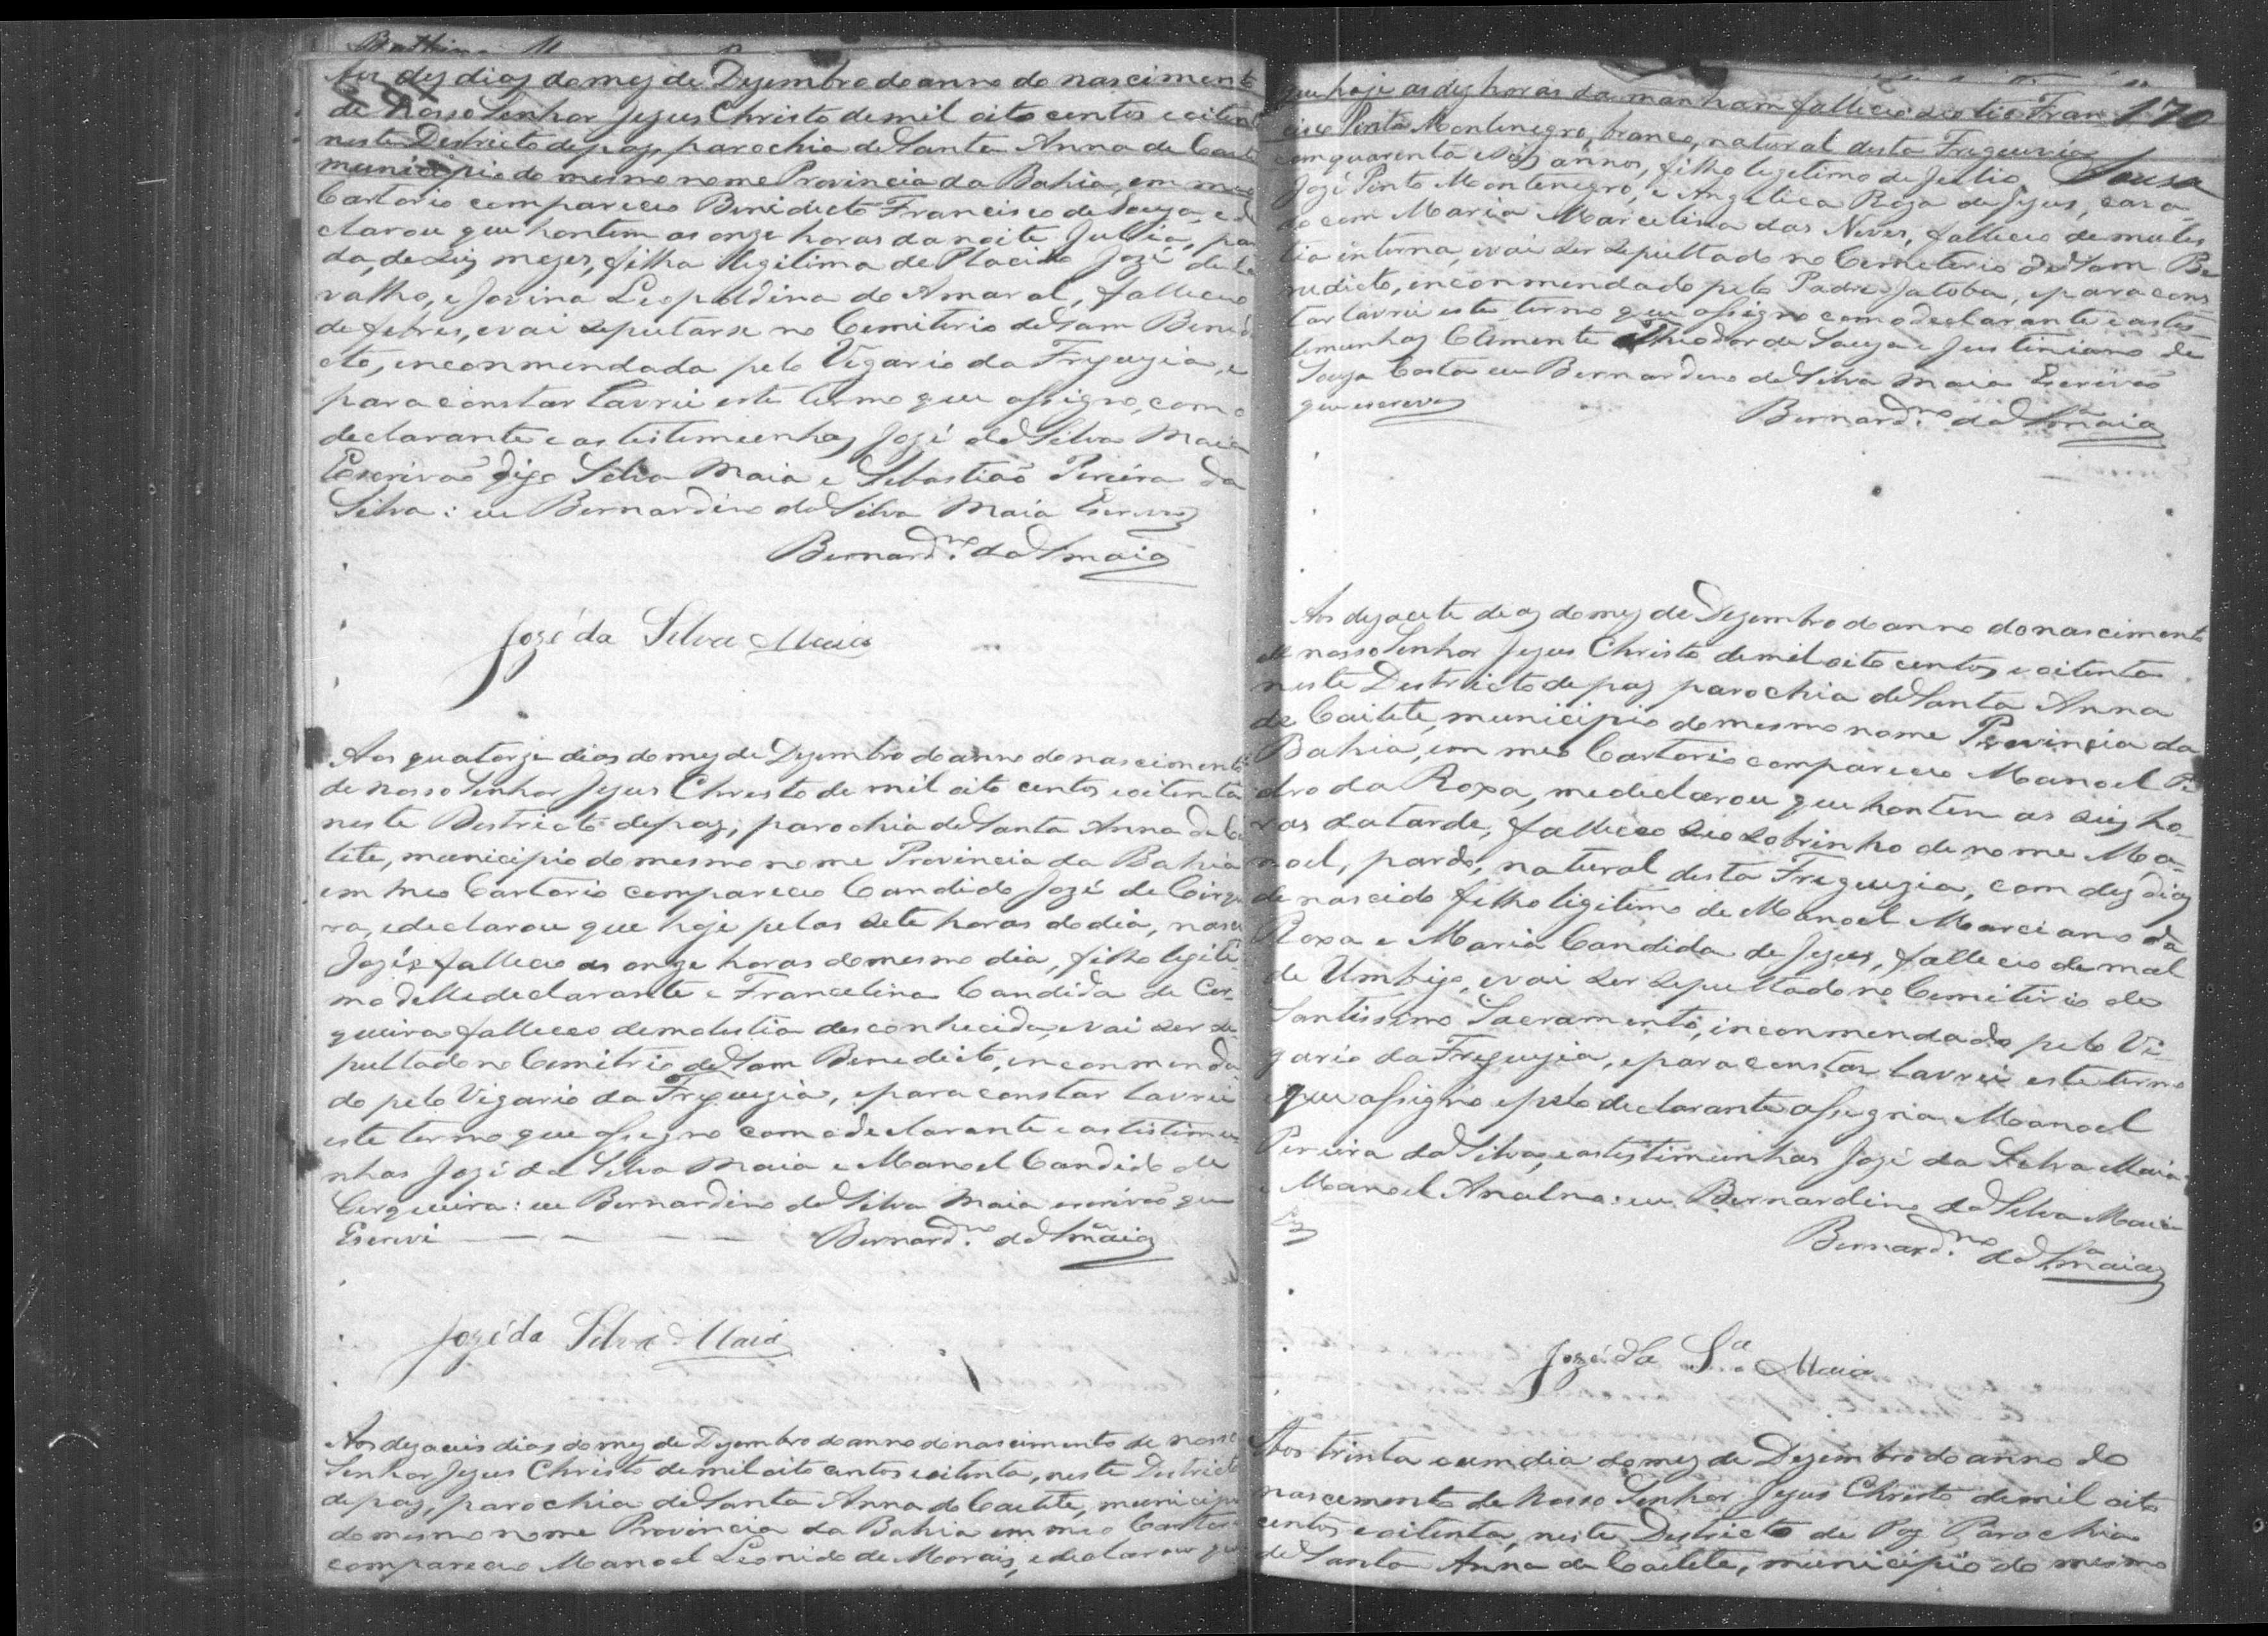 Aos dez dias do mez de Dezembro do anno do nascimento
de Nosso Senhor Jezus Christo de mil oito centos e oitenta
neste Destricto de paz, parochia de Santa Anna de Caete
municipio do mesmo nome Provincia da Bahia, em meo
Cartorio compareceo Binidicto Francisco de Souza, e de
clarou que hontem as onze horas da noite Julia, par
da, de seis mezes, filha legitima de Placido Jozé de Ca
valho, e Jovina Leopoldina do Amaral, falleceo
de febres, e vai sepultarse no Cemiterio de Sam Bened
cto, inconmendada pelo Vigario da Freguezia, e
para constar lavrei este termo que assigno, com o
declarante e as testemunhaz Jozé da Silva Maia
Escrivaõ digo Silva Maia e Sebastiaõ Pereira da
Silva: eu Bernardino da Silva Maia Escrivaõ
Bernard.no da S.a Maia
Jozé da Silva Maia
Aos quatorze dias do mez de Dezembro do anno do nascimento
de nosso Senhor Jezus Christo de mil oito centos e oitenta
neste Destricto de paz, parochia de Santa Anna de Ca
tite, municipio do mesmo nome Provincia da Bahia
em meo Cartorio compareceo Candido Jozé de Cirquei
ra, e declarou que hoje pelas sete horas do dia, nasceo
Jozé, e falleceo as onze horas do mesmo dia, filho legiti
mo delle declarante e Francelina Candida de Cer-
queira falleceo de molestia desconhecida, e vai ser se-
pultado no Cemitrio de Sam Benedicto, inconmenda
do pelo Vigario da Freguezia, e para constar lavrei
este termo que assigno com o declarante e as testimu
nhas Jozé da Silva Maia e Manoel Candido de
Cerqueira: eu Bernardino da Silva Maia escrivaõ que
Escrevi Bernard.no da S.a Maia
Jozé da Silva Maia
Aos dezaceis dias do mez de Dezembro do anno do nascimento de nosso
Senhor Jezus Christo de mil oito centos e oitenta, neste Destricto
de paz, parochia de Santa Anna do Caetite, municipio
do mesmo nome Provincia da Bahia em meo Cartorio
compareceo Manoel Leonido de Morais, e declarou que
que hoje as dez horas da manham falleceo seo tio Fran 170
cisco Pinto Montenegro, branco, natural desta Freguezia
com quarenta e annos, filho legetimo de Julio Sousa
Jozé Pinto Montenegro, e Angelica Roza de Jezus, caza-
do com Maria Marcelina das Neves, falleceo de moles
tia interna, e vai ser sepultado no Cemeterio de Sam Be
nedicto, inconmendado pelo Padre Jatoba, e para cons
tar lavrei este termo que assigno com o declarante e as tes
temunhaz Clemente Theodor de Souza e Justiniano de
Souza Costa eu Bernardino da Silva Maia Escrivaõ
que escrevi
Bernard.no da S.a Maia
Aos dezacete deaz do mez de Dezembro do anno do nascimento
de nosso Senhor Jezus Christo de mil oito centos e oitenta
neste Destricto de paz parochia de Santa Anna
de Caitete, municipio do mesmo nome Provincia da
Bahia, em meo Cartorio compareceo Manoel Pe
dro da Roxa, me declarou que hontem as seis ho-
ras da tarde, falleceo seo sobrinho de nome Ma-
noel, pardo, natural desta Freguezia, com dez dias
de nascido filho ligitimo de Manoel Marciano da
Roxa e Maria Candida de Jezus, falleceo de mal
de Umbigo, e vai ser sepultado no Cemiterio do
Santissimo Sacramento, inconmendado pelo Vi-
gario da Freguezia, e para constar lavrei este termo
que assigno e pelo declarante assigna Manoel
Pereira da Silva, e as testimunhas Jozé da Silva Maia
e Manoel : eu Bernardino da Silva Maia
Bernard.no da S.a Maia
Jozé da S.a Maia
Aos trinta e um dia do mez de Dezembro do anno do
nascemento de Nosso Senhor Jezus Christo de mil oito
centos e oitenta, neste Destricto de Paz Parochia
de Santa Anna de Caetete, municipio do mesmo